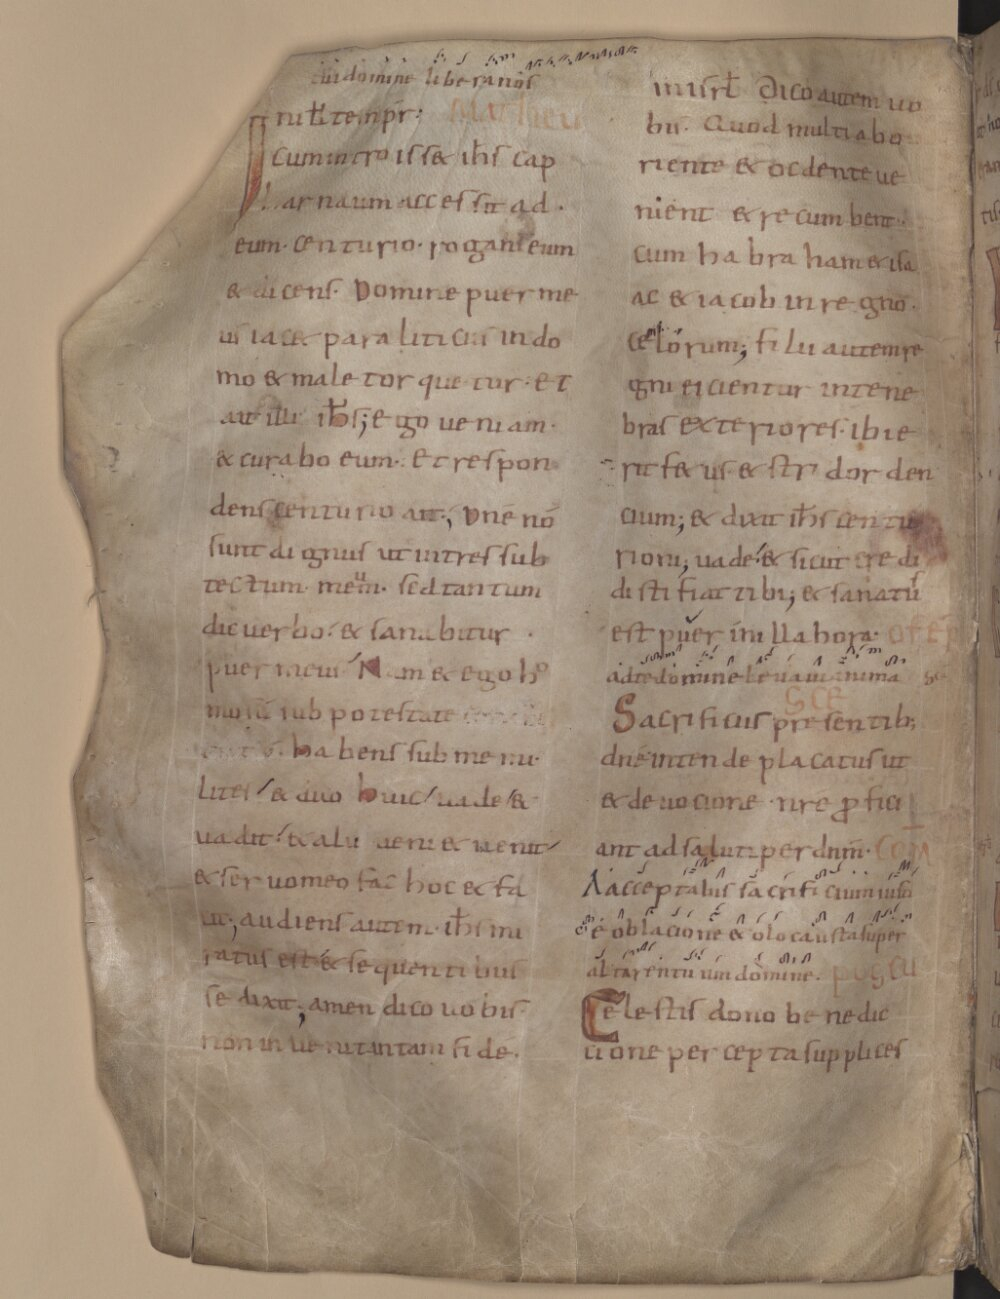 tui domine libera nos
In illˉ tempr̄. Matheu
cum intro isset ihs cap
harnaum accessit ad.
eum. centurio. rogans eum
& dicens. Domine puer me
us iacet paraliticus in do
mo & male torquetur. et
ait illi ihs; ego ueniam.
& curabo eum. Et respon
dens centurio ait; Dne nō
sunt dignus ut intres sub
tectum. meum. sed tantum
dic uerbo. & sanabitur .
puer meus. Nam et ego ho
mo sū sub potestate
habens sub me mi
lites. & dico huic uade. &
uadit. & alii ueni & uenit
& seruo meo fac hoc & fa
cit; audiens autem. ihs mi
ratus est & sequentibus
se dixit; amen dico uobis
non inueni tantam fidē.
in isrl̄ Dico autem uo
bis. Quod multi abo
riente & occdente ue
nient & recumbent.
cum habraham & isa
ac & iacob in regno.
celorum; filii autem re
gni eicientur in tene
bras exteriores. ibi e
rit fletus & stridor den
cium; & dixit ihs centu
rioni; uade. & sicut credi
disti fiat tibi; & sanatū
est puer in illa hora. OFF
ad te domine leuaui anima
SCE
Sacrificiis presentib;
dnē intende placatus ut
& deuocione nrē profici
ant ad saluti per dnm̄. COM
Acceptabis sacrificium iusti
e oblacione & olocausta super
altare tuum domine. POSCU
Celestis dono benedic
cione percepta supplices